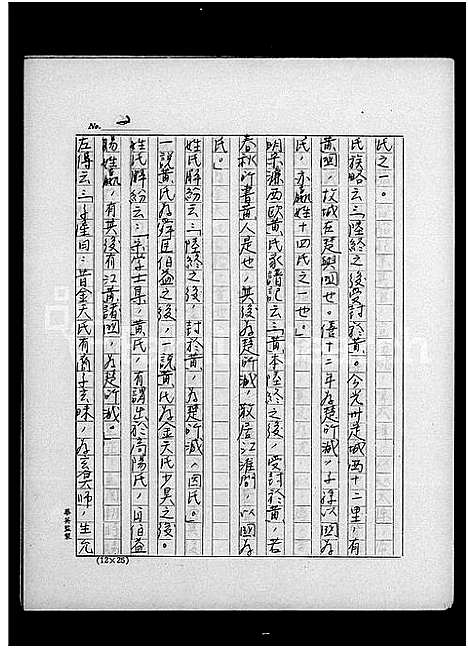 No. 2
氏之一。
氏族略云:「陸終之後受封於黃。今光州定城西十二里,有
黃國,故城在楚與國也。僖十二年為楚所滅,子孫以國為
氏,亦嬴姓十四氏之一也。」
明宋濂西歐黃氏家譜記云:「黃本陸終之後,受封於黃,若
春秋所書黃人是也,其後為楚所滅,散居江淮間,以國為
氏。」
姓氏辯紛云:「陸終之後,封於黃,為楚所滅,因氏。」
一說黃氏為舜臣伯益之後,一說黃氏為金天氏少昊之後。
姓氏辯紛云:「宋學士集,黃氏,有謂出於高陽氏,且伯益
賜姓嬴,有其後有江黃諸國,為楚所滅。」
左傳云:「子產曰:昔金天氏有裔子玄昧,為玄冥師,生允
(12×25)